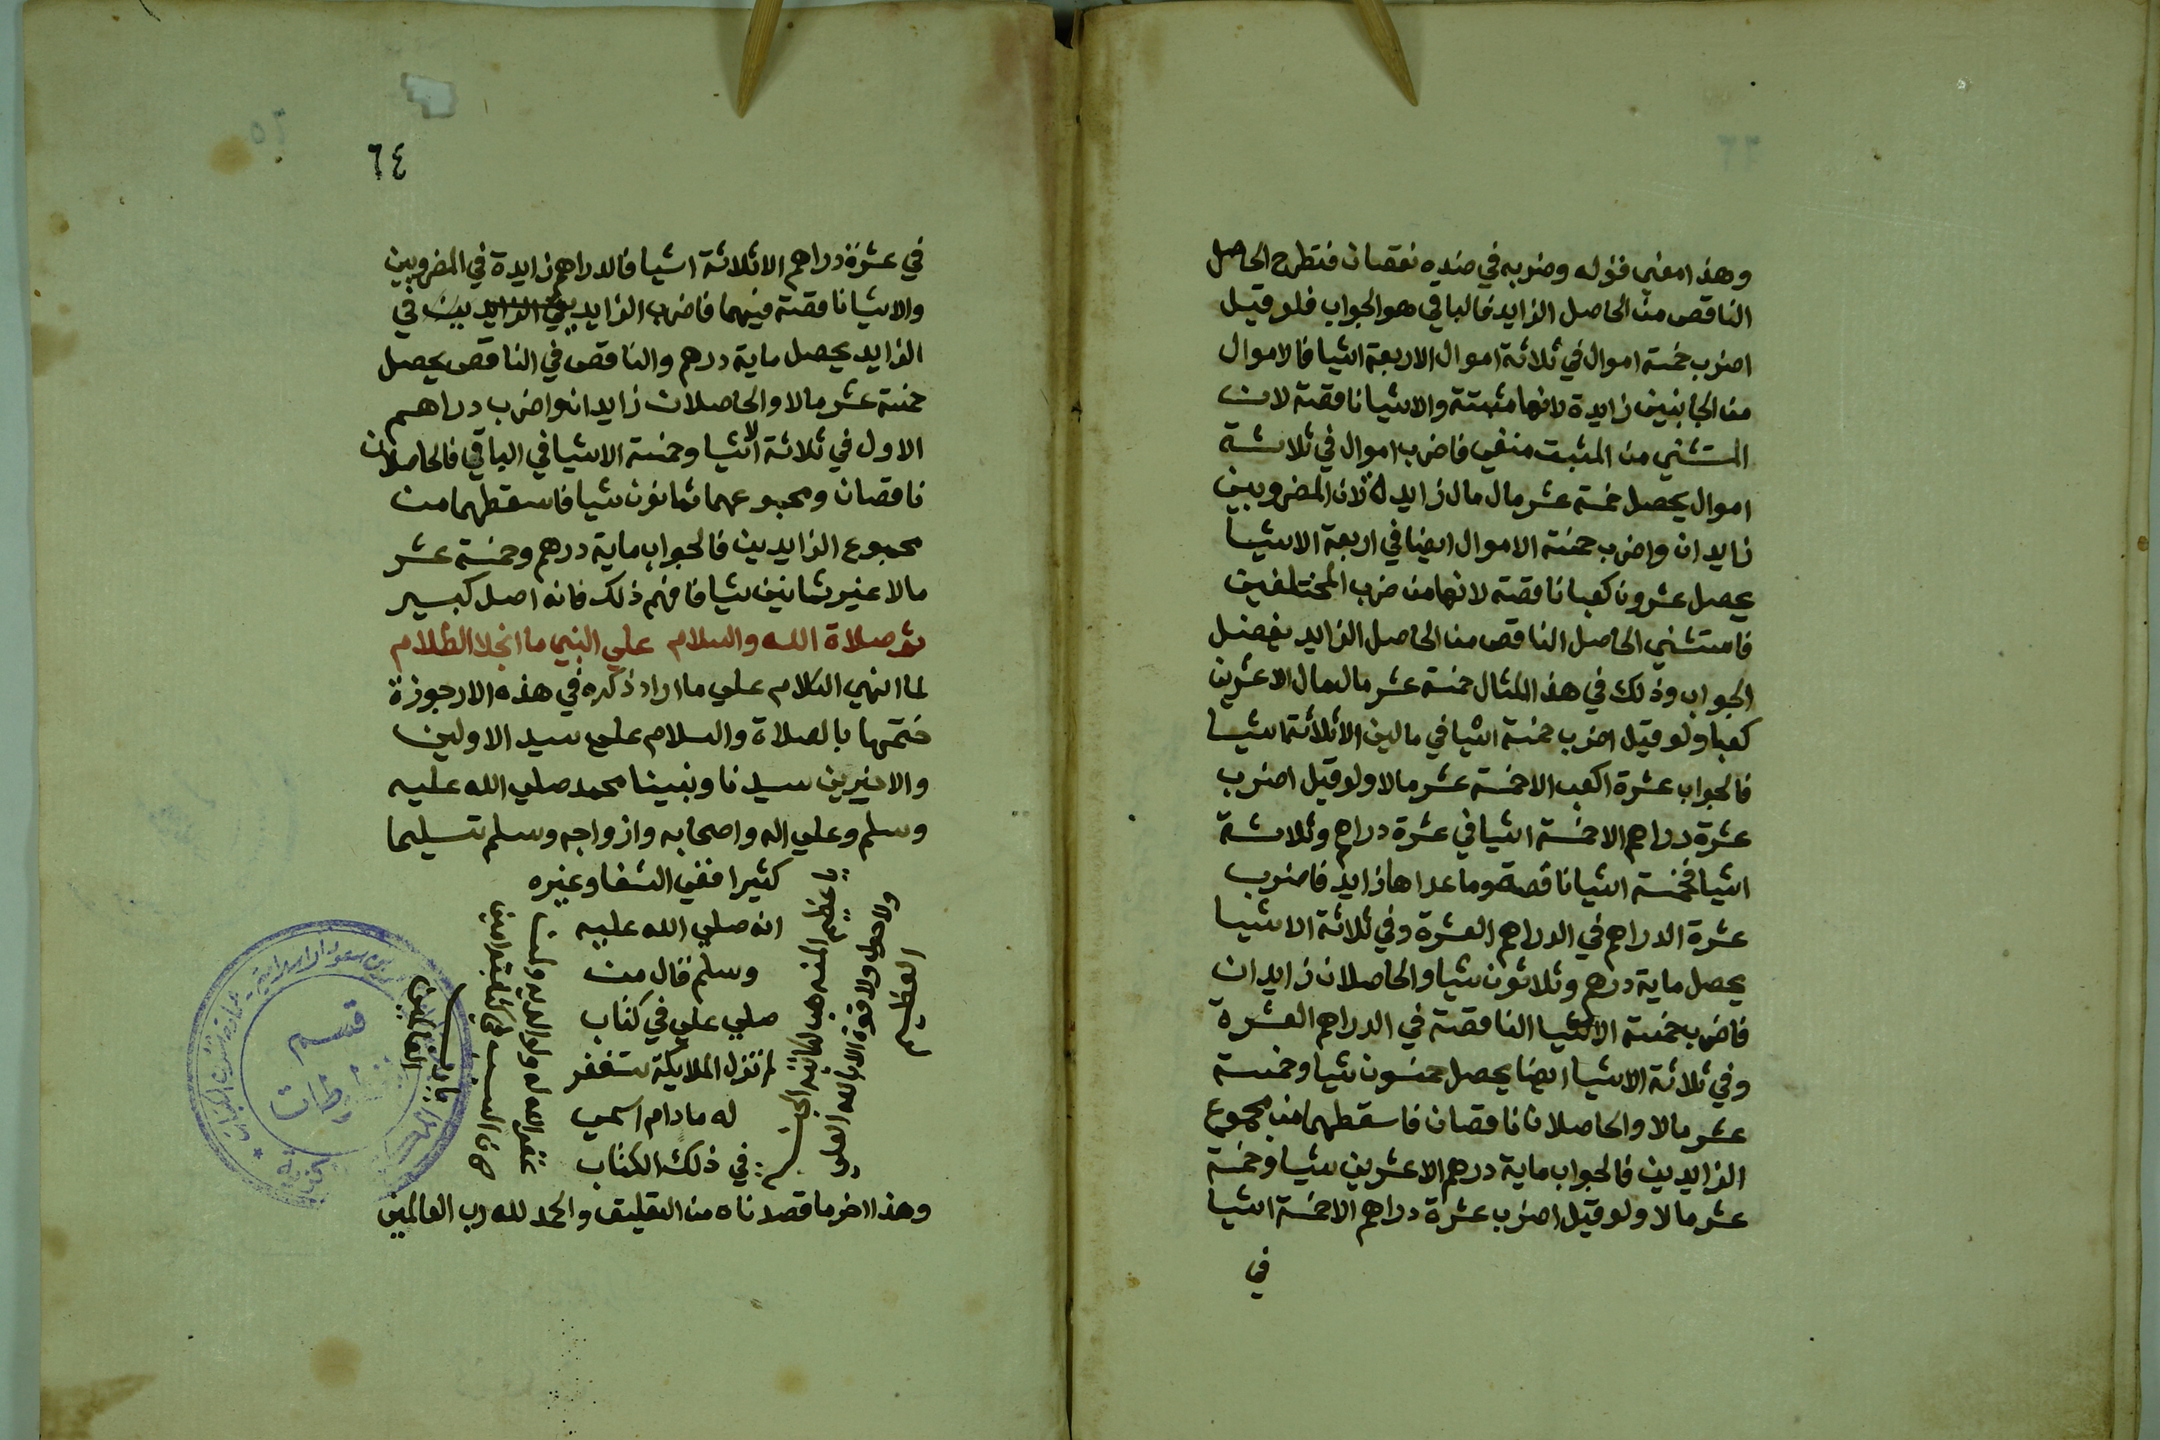 وهذا معني قوله وضربه في ضده نقصان فتطرح الحاصل
الناقص من الحاصل الزايد فالباقي هو الجواب فلو قيل
اضرب خمسة اموال في ثلاثة اموال الا اربعة اشيا فالاموال
من الجانبين زايدة لانها مثبتة والاشيا ناقصة لان
المستثني من المثبت منفي فاضرب اموال في ثلاثة
اموال يحصل خمسة عشر مال مال زايدة لان المضروبين
زايدان واضرب خمسة الاموال ايضا في اربعة الاشيا
يحصل عشرون كعبا ناقصة لانها من ضرب المختلفين
فاستثني الحاصل الناقص من الحاصل الزايد يفضل
الجواب وذلك في هذا المثال خمسة عشر مال مال الا عشرين
كعبا ولو قيل اضرب خمسة اشيا في مالين الا ثلاثة اشيا
فالجواب عشرة اكعب الا خمسة عشر مالا ولو قيل اضرب
عشرة دراهم الا خمسة اشيا في عشرة دراهم وثلاثة
اشيا فخمسة اشيا ناقصة وما عداها زايد فاضرب
عشرة الدراهم في الدراهم العشرة وفي ثلاثة الاشيا
يحصل ماية درهم وثلاثون شيا والحاصلان زايدان
فاضرب خمسة الاشيا الناقصة في الدراهم العشرة
وفي ثلاثة الاشيا ايضا يحصل خمسون شيا وخمسة
عشر مالا والحاصلان ناقصان فاسقطهما من مجموع
الزايدين فالجواب ماية درهم الا عشرين شيا وخمسة
عشر مالا ولو قيل اضرب عشرة دراهم الا خمسة اشيا
في
٦٤
في عشرة دراهم الا ثلاثة اشيا فالدراهم زايدة في المضروبين
والاشيا ناقصة فيهما فاضرب الزايد في
الزايد يحصل ماية درهم والناقص في الناقص يحصل
خمسة عشر مالا والحاصلان زايدان واضرب دراهم
الاول في ثلاثة الاشيا وخمسة الاشيا في الباقي فالحاصلان
ناقصان ومجموعهما ثمانون شيا فاسقطهما من
مجموع الزايدين فالجواب ماية درهم وخمسة عشر
مالا غير ثمانين شيا فافهم ذلك فانه اصل كبير
ثم صلاة الله والسلام علي النبي ما انجلا الظلام
لما انهي الكلام علي ما اراد ذكره في هذه الارجوزة
ختمها بالصلاة والسلام علي سيد الاولين
والاخرين سيدنا ونبينا محمد صلي الله عليه
وسلم وعلي اله واصحابه وازواجه وسلم تسليما
كثيرا ففي الشفا وغيره
انه صلي الله عليه
وسلم قال من
صلي علي في كتاب
لم تزل الملايكة تستغفر
له مادام اسمي
في ذلك الكتاب
وهذا اخر ما قصدناه من التعليق والحمد لله رب العالمين
ولا حول ولا قوة الا بالله العلي
العظيم
غفر الله له ولوالديه ولمن
العالمين
قسم
المخطوطات